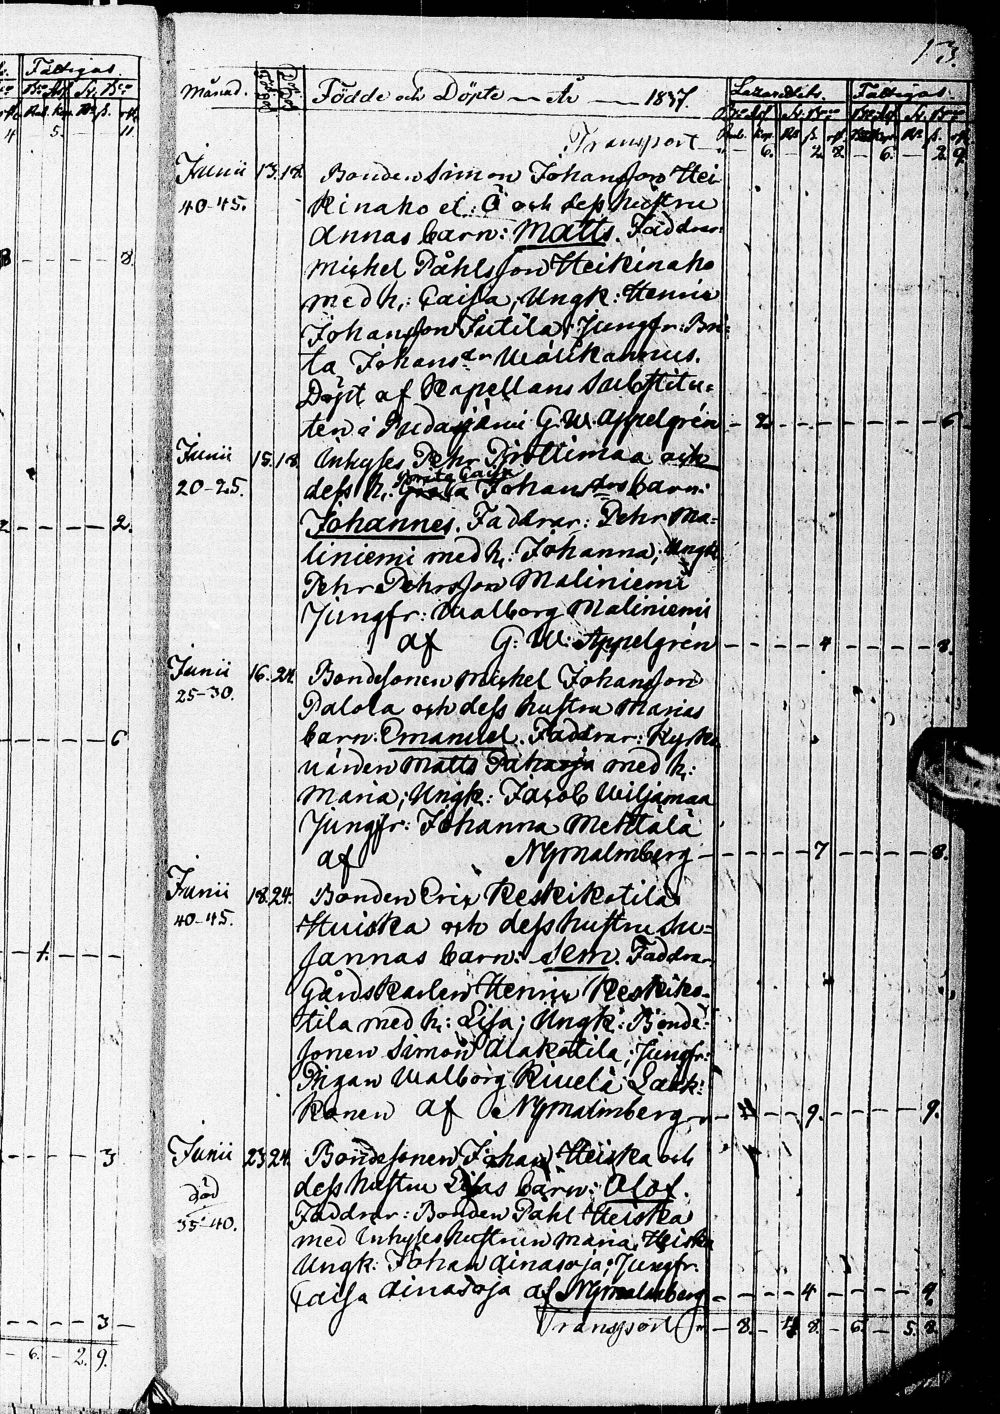 13.
Månad. Födde och Döpte — År — 1837. Lazarettet. Fattigas.
Transport — 6. — 2. 8. — 6. — 2. 9.
Junii 13. 18. Bonden Simon Johansson Hei
40-45. kinaho et: Ö och dess hustru
Annas barn: Matts. Faddrar:
Michel Påhlsson Heikinaho
med h: Caisa; Ungk: Henric
Johansson Jutila; Jungfr: Bri-
ta Johansdr Wälikannus.
Döpt af Kapellans Substitu-
ten i Pudasjärvi G. W. Appelgrén — 2. — 6
Junii 15. 18. Inhyses Pehr Prottimaa och
20-25. dess h: Greta Caisa Johansdrs barn:
Johannes. Faddrar: Pehr Ma-
liniemi med h: Johanna; Ungk:
Pehr Pehrsson Maliniemi
Jungfr: Walborg Maliniemi
af G: W: Appelgrén — 4 — 8.
Junii 16. 24. Bondesonen Michel Johansson
25-30. Palola och dess hustru Marias
barn: Emanuel. Faddrar: Kyrko
värden Matts med h:
Maria; Ungk: Jacob Wiljamaa
Jungfr: Johanna Mehtälä
af Nymalmberg — 7 — 8.
Junii 18. 24. Bonden Eric Keskikotila
40-45. Huiska och dess hustru Su-
sannas barn: Sem. Faddrar
Gårdskarlen Henric Keskiko-
tila med h: Lisa; Ungk: Bonde-
sonen Simon Alakotila; Jungfr:
Pigan Walborg Kiuelä Laak-
konen af Nymalmberg — 9. — 9.
Junii 23 24. Bondesonen Johan Heiska och
död dess hustru Lisas barn: Olof.
35-40. Faddrar: Bonden Påhl Heiska
med Inhyses hustrun Maria Heiska
Ungk: Johan Ainasoja; Jungfr:
Caisa Ainasoja af Nymalmberg — 4 — 9.
Transport — 8. — 4 8. — 6. — 5. 2.